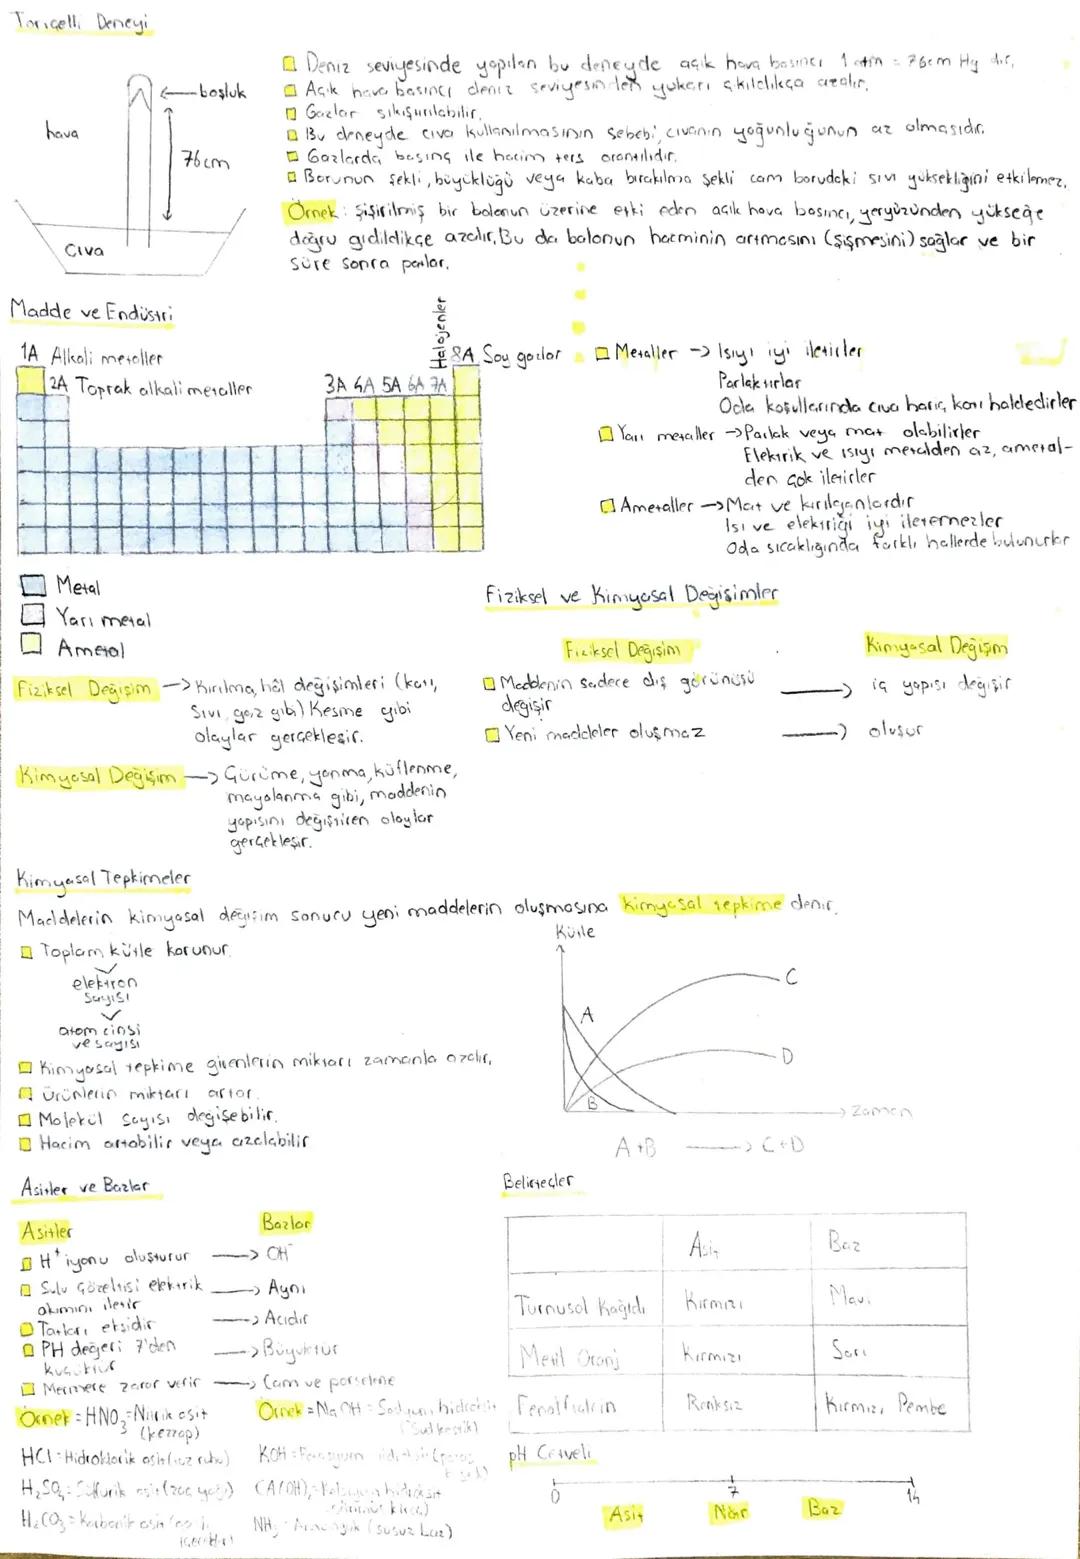 Toriçelli Deneyi
boşluk
hava
76cm
Cıva
Deniz seviyesinde yapılan bu deneyde açık hava basıncı 1 atm = 76cm Hg dir.
Açık hava basıncı deniz seviyesinden yukarı çıkıldıkça azalır.
Gazlar sıkıştırılabilir.
Bu deneyde cıva kullanılmasının sebebi, cıvanın yoğunluğunun az olmasıdır.
Gazlarda basınç ile hacim ters orantılıdır.
Borunun şekli, büyüklüğü veya kaba bırakılma şekli cam borudaki sıvı yüksekliğini etkilemez.
Örnek: Şişirilmiş bir balonun üzerine etki eden açık hava basıncı, yeryüzünden yükseğe
doğru gidildikçe azalır. Bu da balonun hacminin artmasını (şişmesini) sağlar ve bir
süre sonra patlar.
Madde ve Endüstri
1A Alkali metaller
2A Toprak alkali metaller
3A 4A 5A 6A 7A
Halojenler
8A Soy gazlar
Metal
Yarı metal
Ametal
Metaller -> Isıyı iyi iletirler
Parlaktırlar
Oda koşullarında cıva hariç katı haldedirler
Yarı metaller -> Parlak veya mat olabilirler
Elektrik ve ısıyı metalden az, ametal-
den çok iletirler
Ametaller -> Mat ve kırılganlardır
Isı ve elektriği iyi iletemezler
Oda sıcaklığında farklı hallerde bulunurlar
Fiziksel ve Kimyasal Değişimler
Fiziksel Değişim
Kimyasal Değişim
Maddenin sadece dış görünüsü
değişir
-> iç yapısı değişir
Yeni maddeler oluşmaz -> oluşur
Fiziksel Değişim -> Kırılma, hâl değişimleri (katı,
sıvı, gaz gibi) Kesme gibi
olaylar gerçekleşir.
Kimyasal Değişim -> Çürüme, yanma, küflenme,
mayalanma gibi, maddenin
yapısını değiştiren olaylar
gerçekleşir.
Kimyasal Tepkimeler
Maddelerin kimyasal değişim sonucu yeni maddelerin oluşmasına kimyasal tepkime denir.
Toplam kütle korunur.
elektron
sayısı
atom cinsi
ve sayısı
Kimyasal tepkime girenlerin miktarı zamanla azalır.
Ürünlerin miktarı artar.
Molekül sayısı değişebilir.
Hacim artabilir veya azalabilir
Kütle
A
B
C
D
Zaman
A+B -> C+D
Asitler ve Bazlar
Asitler
Bazlar
H⁺ iyonu oluşturur -> OH⁻
Sulu çözeltisi elektrik
akımını iletir
-> Aynı
Tatları ekşidir -> Acıdır
PH değeri 7'den
küçüktür
-> Büyüktür
Mermere zarar verir -> Cam ve porselene
Örnek = HNO₃ = Nitrik asit
(kezzap)
HCl = Hidroklorik asit (tuz ruhu)
H₂SO₄ = Sülfurik asit (zaç yağı)
H₂CO₃ = Karbonik asit
Örnek = NaOH = Sodyum hidroksit
(Sud kostik)
KOH = Potasyum hidroksit
CA(OH)₂ = Kalsiyum hidroksit
(Sönmüş kireç)
NH₃ = Amonyak (susuz baz)
Belirteçler
Asit
Baz
Turnusol Kağıdı
Kırmızı
Mavi
Metil Oranj
Kırmızı
Sarı
Fenolftalein
Renksiz
Kırmızı, Pembe
pH Cetveli
0
7
14
Asit
Nötr
Baz